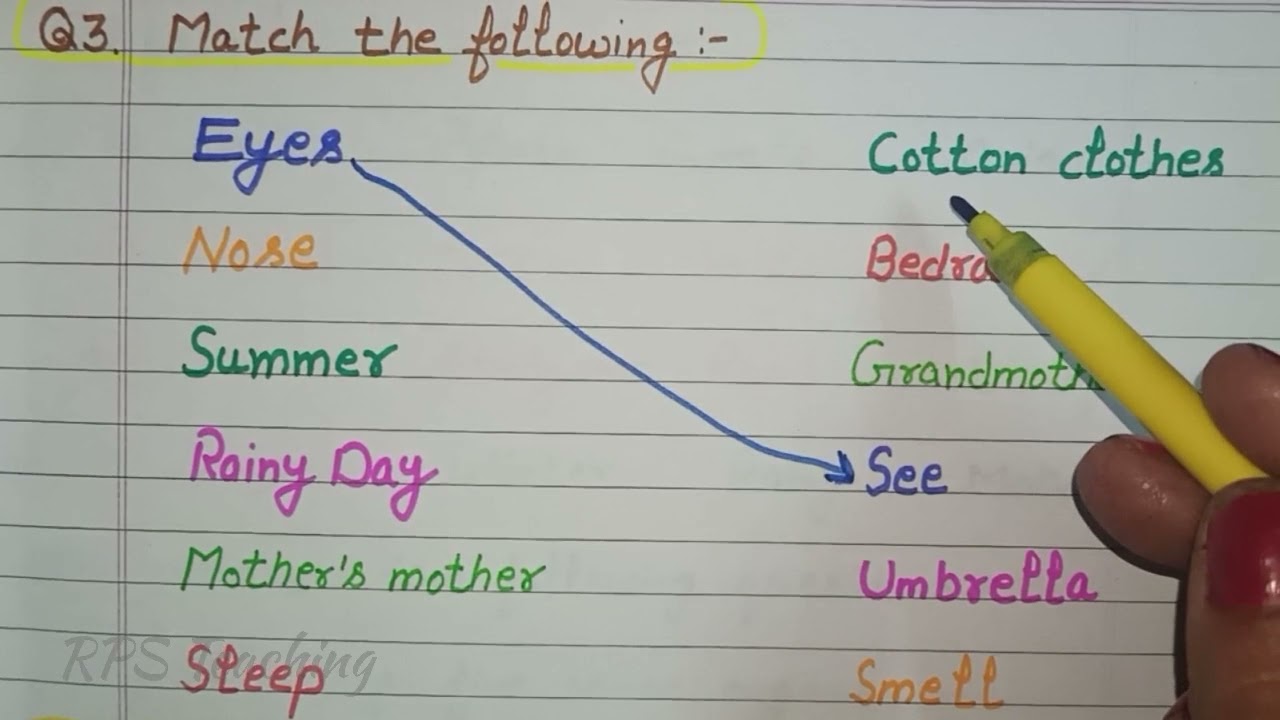 Q3. Match the following :-
Eyes Cotton clothes
Nose
Summer
Rainy Day See
Mother's mother Umbrella
Sleep Smell
RPS Teaching